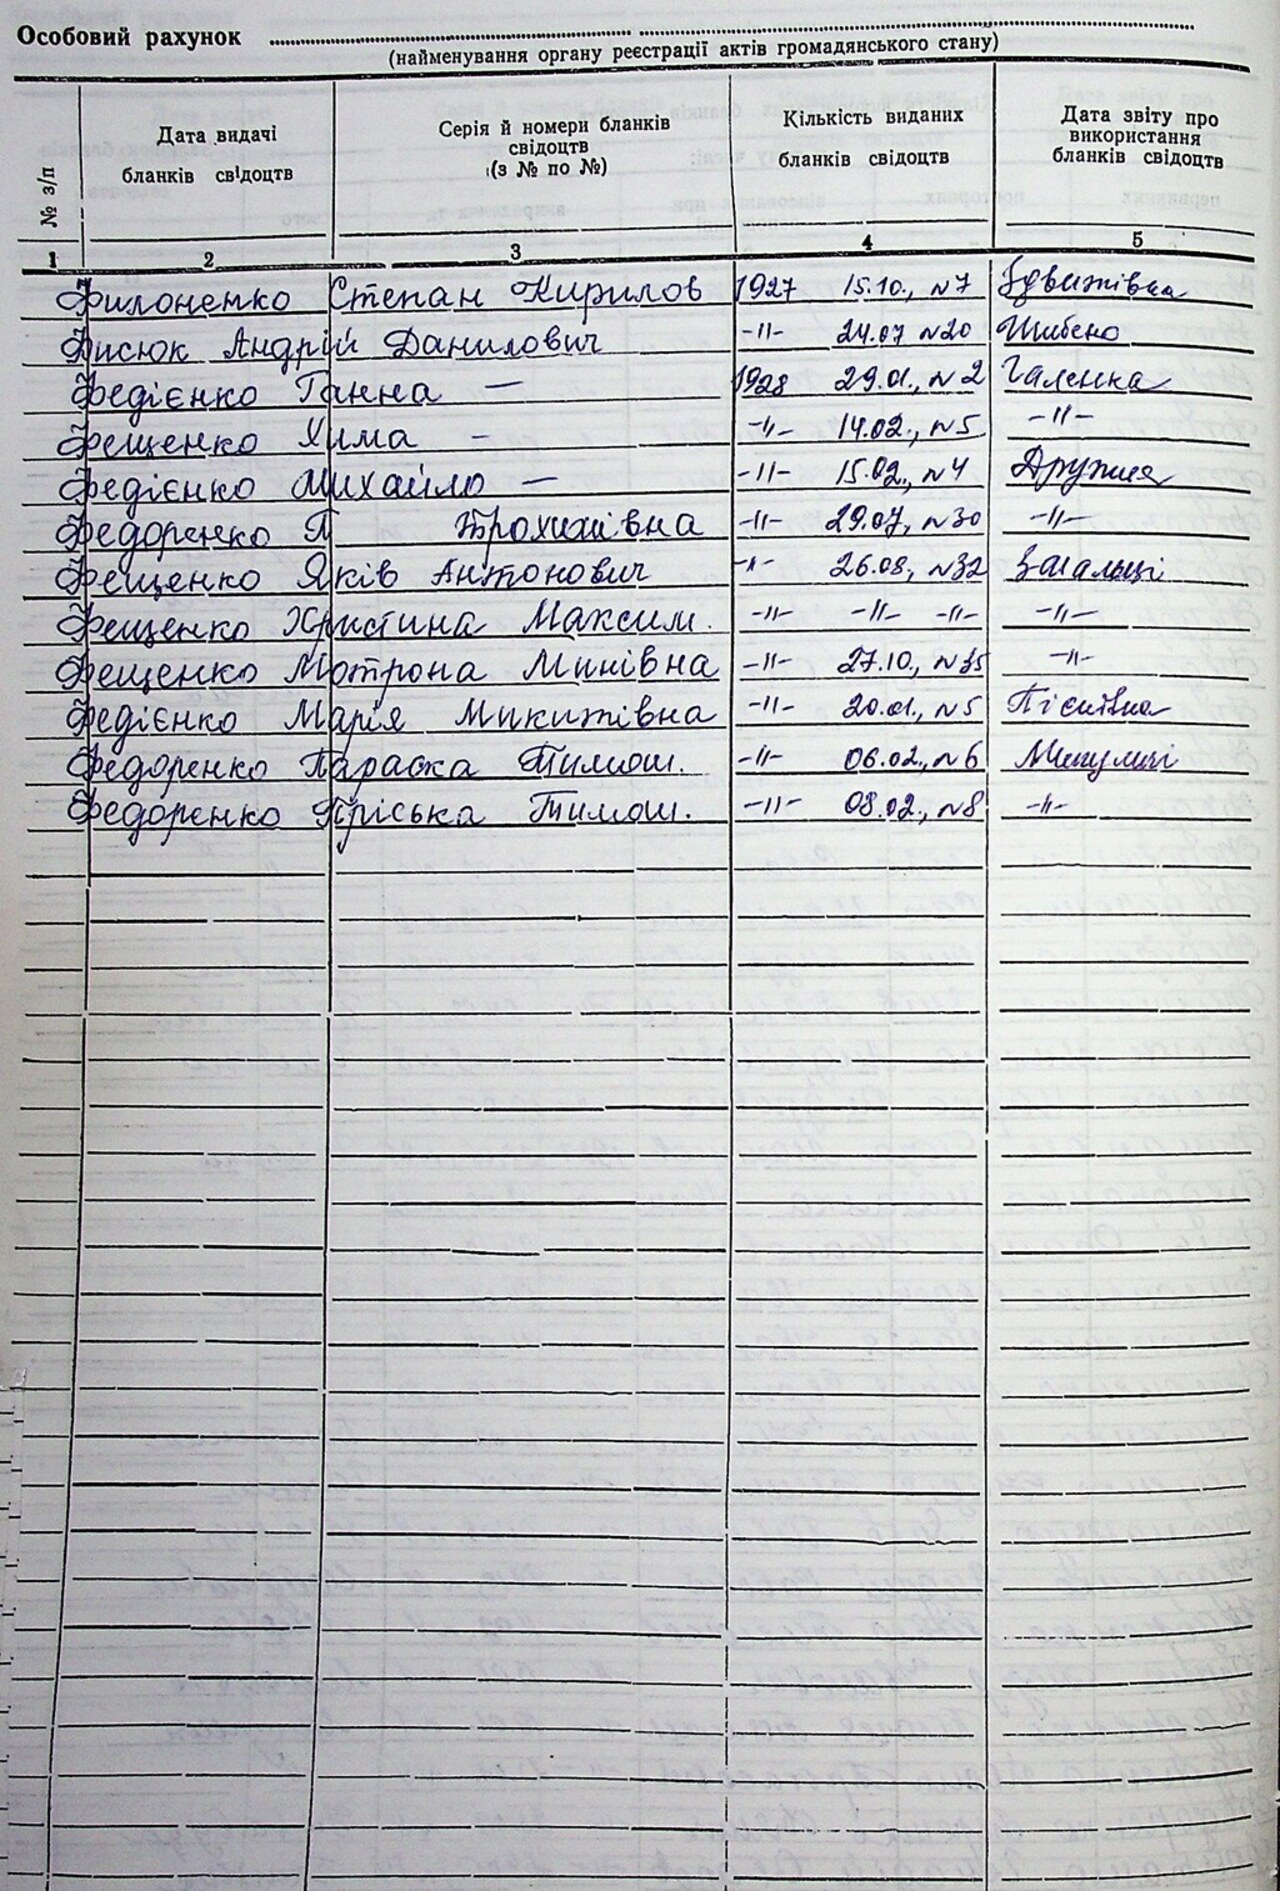 Особовий рахунок
(найменування органу реєстрації актів громадянського стану)
№ з/п
Дата видачі
бланків свідоцтв
Серія й номери бланків
свідоцтв
(з № по №)
Кількість виданих
бланків свідоцтв
Дата звіту про
використання
бланків свідоцтв
1 2 3 4 5
Филоненко Степан Кирилов 1927 15.10., №7 Здвижівка
Фисюк Андрій Данилович -"- 24.07 №20 Шибено
Федієнко Ганна — 1928 29.01., №2 Галенка
Фещенко Хима - -"- 14.02., №5 -"-
Федієнко Михайло — -"- 15.02., №4 Дружня
Федоренко П Трохимівна -"- 29.07, №30 -"-
Фещенко Яків Антонович -"- 26.08, №32 Загальці
Фещенко Христина Максим. -"- -"- -"- -"-
Фещенко Мотрона Минівна -"- 27.10., №35 -"-
Федієнко Марія Микитівна -"- 20.01., №5
Федоренко Параска Тимош. -"- 06.02., №6 Микуличі
Федоренко Пріська Тимош. -"- 08.02., №8 -"-